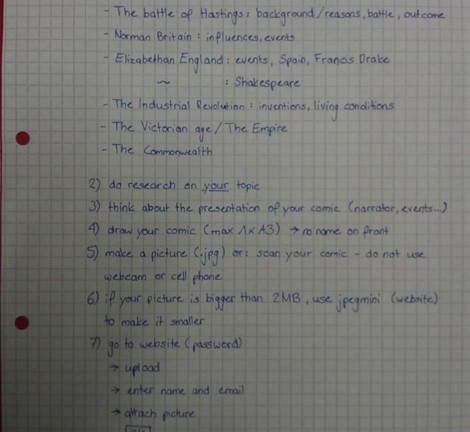 - The battle of Hastings: background/reasons, battle, outcome
- Norman Britain: influences, events
- Elizabethan England: events, Spain, Francis Drake
~ : Shakespeare
- The Industrial Revolution: inventions, living conditions
- The Victorian age / The Empire
- The Commonwealth
2) do research on your topic
3) think about the presentation of your comic (narrator, events...)
4) draw your comic (max 1xA3) → no name on front
5) make a picture (.jpg) or: scan your comic - do not use
webcam or cell phone
6) if your picture is bigger than 2MB, use jpegmini (website)
to make it smaller
7) go to website (password)
→ upload
→ enter name and email
→ attach picture